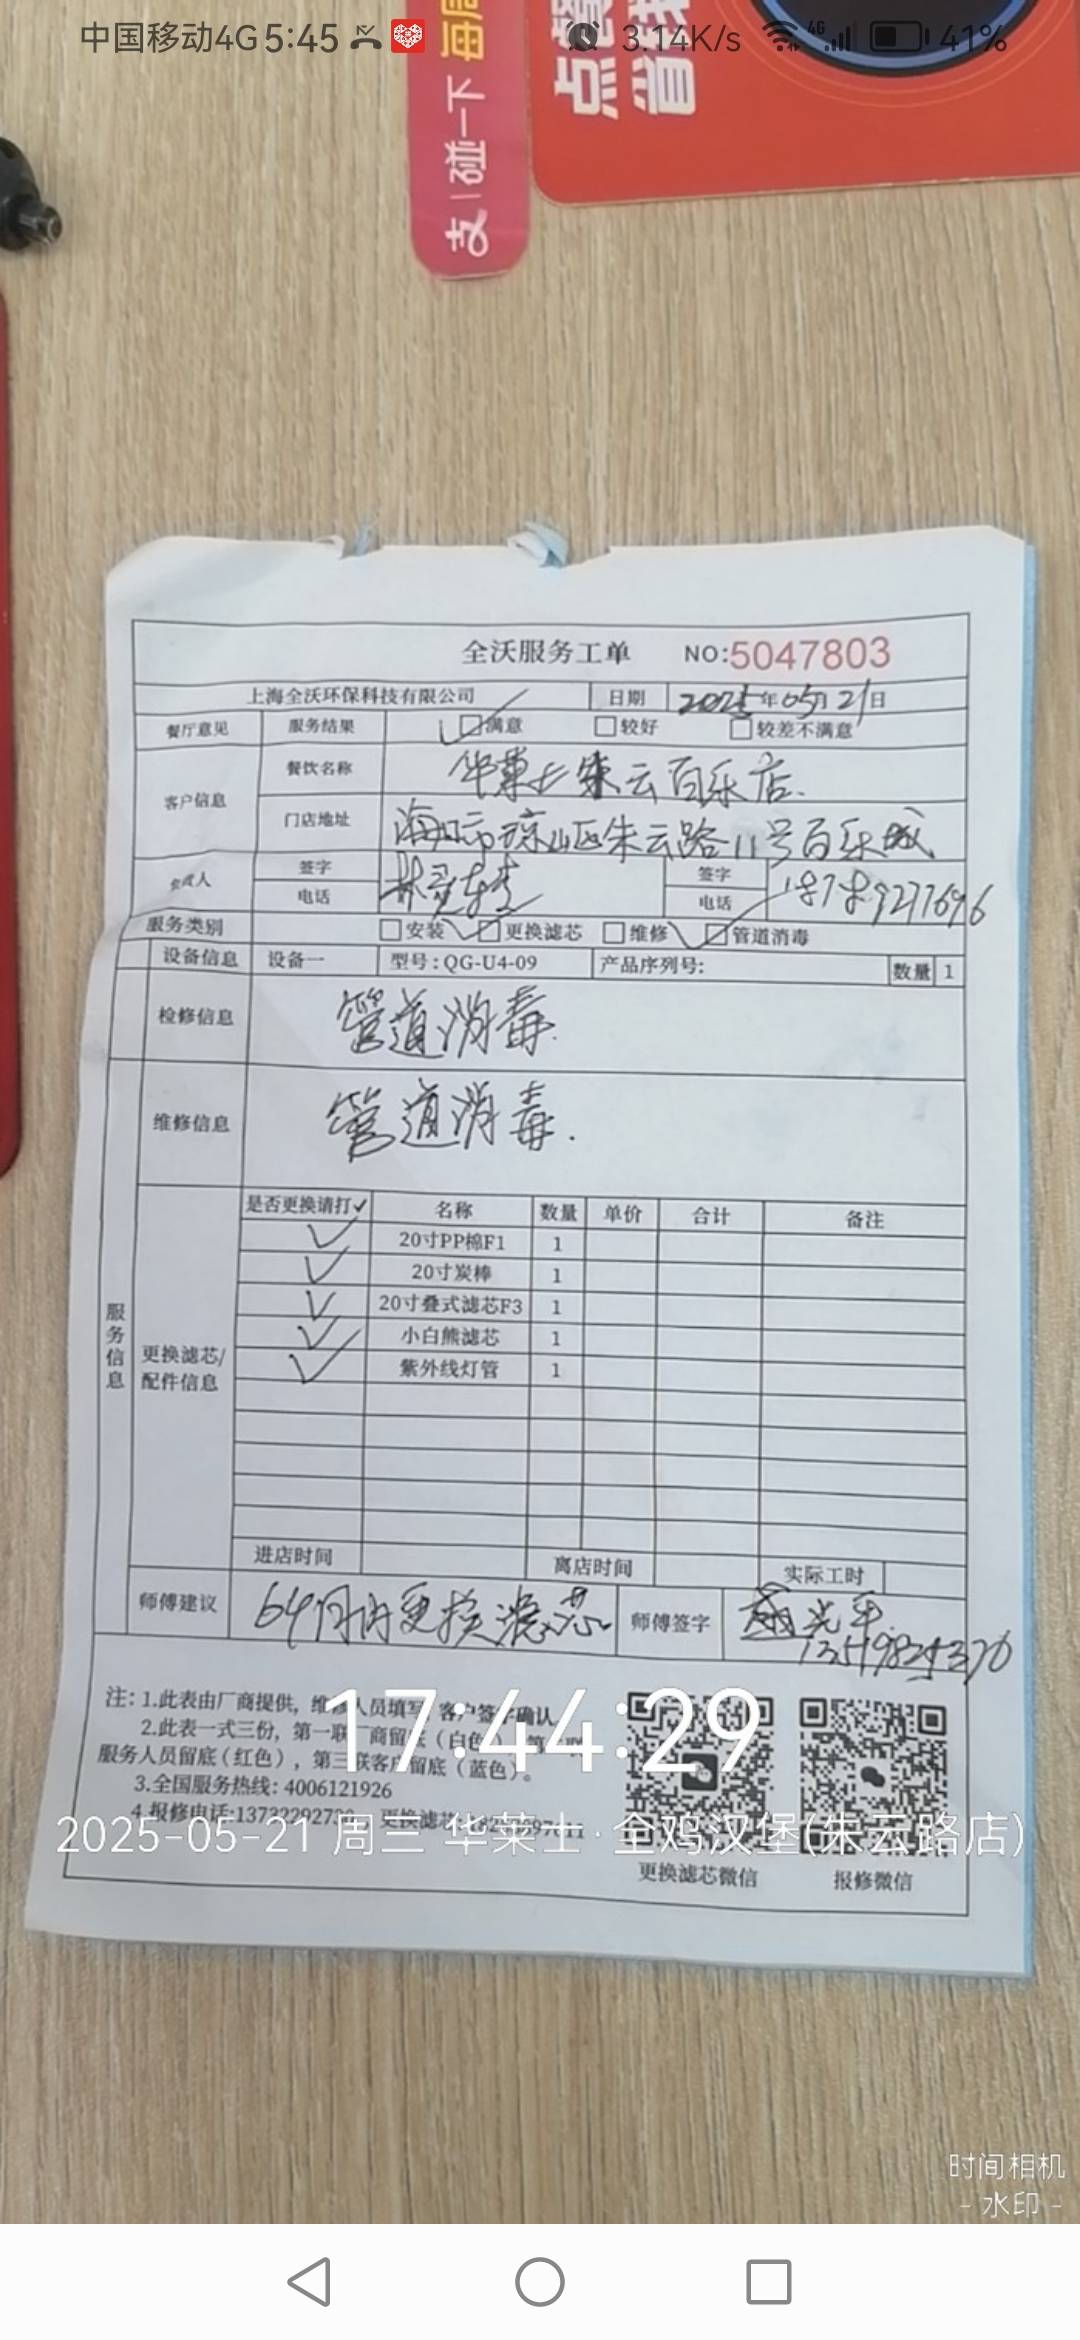 中国移动4G 5:45 3.14K/s 4G 41%
支 碰一下
点餐
省
全沃服务工单 NO:5047803
上海全沃环保科技有限公司 日期 2025年05月21日
餐厅意见 服务结果 满意 较好 较差不满意
客户信息 餐饮名称 华莱士朱云百乐店
门店地址 海口市琼山区朱云路11号百乐城
签字 签字
电话 电话
服务类别 安装 更换滤芯 维修 管道消毒
设备信息 设备一 型号:QG-U4-09 产品序列号: 数量 1
检修信息 管道消毒.
维修信息 管道消毒.
服务信息
更换滤芯/配件信息
是否更换请打✓ 名称 数量 单价 合计 备注
✓ 20寸PP棉F1 1
✓ 20寸炭棒 1
✓ 20寸叠式滤芯F3 1
✓ 小白熊滤芯 1
✓ 紫外线灯管 1
进店时间 离店时间 实际工时
师傅建议 6个月内更换滤芯 师傅签字
注: 1.此表由厂商提供, 维修人员填写, 客户签字确认
2.此表一式三份, 第一联厂商留底(白色)
服务人员留底(红色), 第三联客户留底(蓝色)。
3.全国服务热线: 4006121926
4.报修电话: 更换滤芯
更换滤芯微信 报修微信
17:44:29
2025-05-21 周三 华莱士·全鸡汉堡(朱云路店)
时间相机
- 水印 -